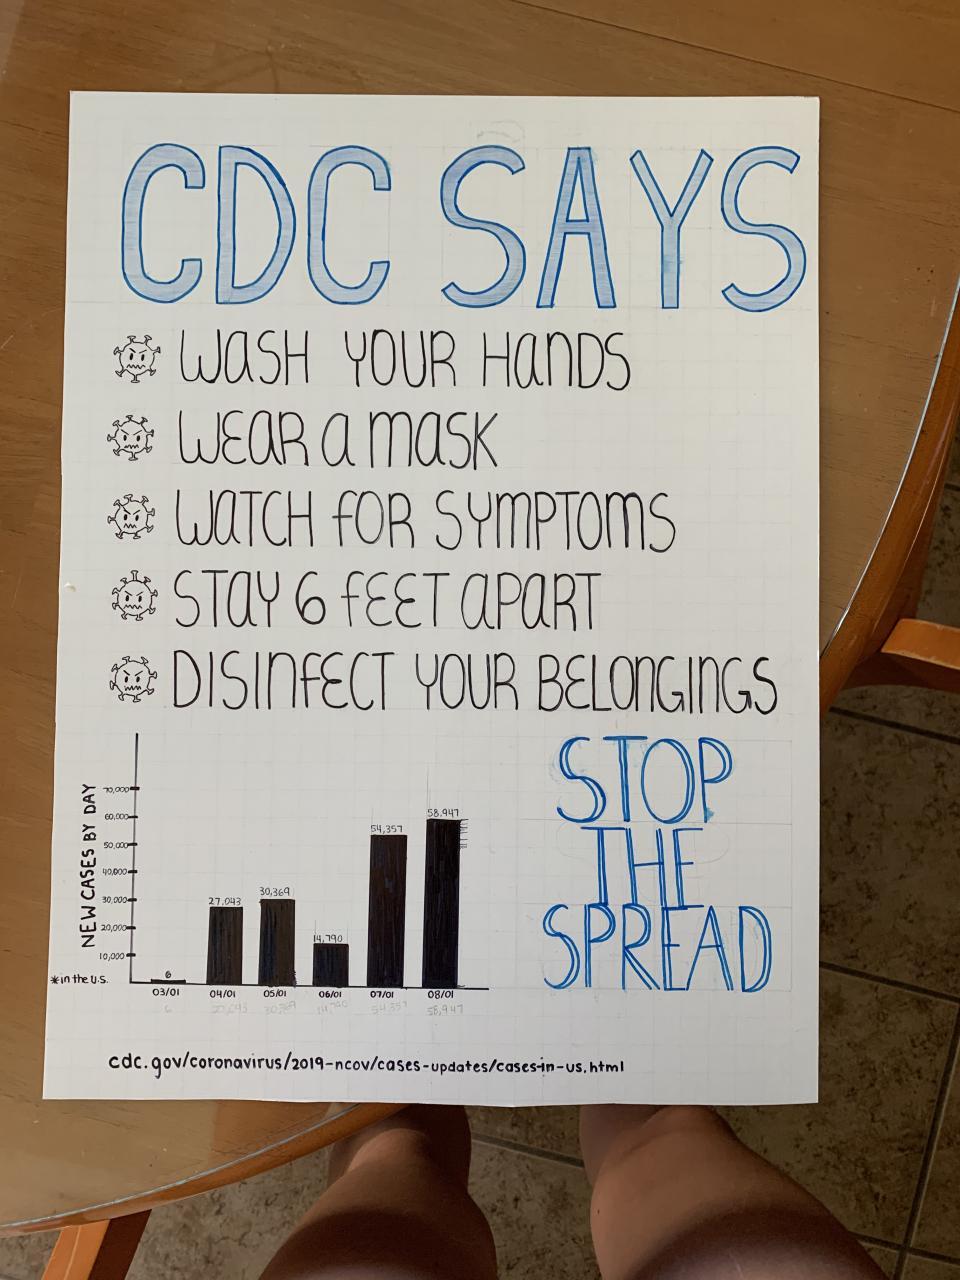 CDC SAYS
WASH YOUR HANDS
WEAR A MASK
WATCH FOR SYMPTOMS
STAY 6 FEET APART
DISINFECT YOUR BELONGINGS
STOP
THE
SPREAD
NEW CASES BY DAY
70,000
60,000
50,000
40,000
30,000
20,000
10,000
6
27,043
30,369
14,790
54,357
58,947
*in the U.S.
03/01 04/01 05/01 06/01 07/01 08/01
6 27,043 30,369 14,790 54,357 58,947
cdc.gov/coronavirus/2019-ncov/cases-updates/cases-in-us.html